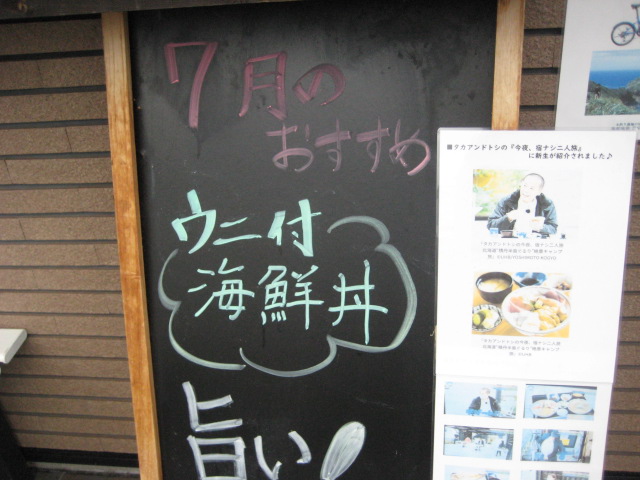 7月の
おすすめ
ウニ付
海鮮丼
旨い!
■タカアンドトシの『今夜、宿ナシ二人旅』
に新生が紹介されました♪